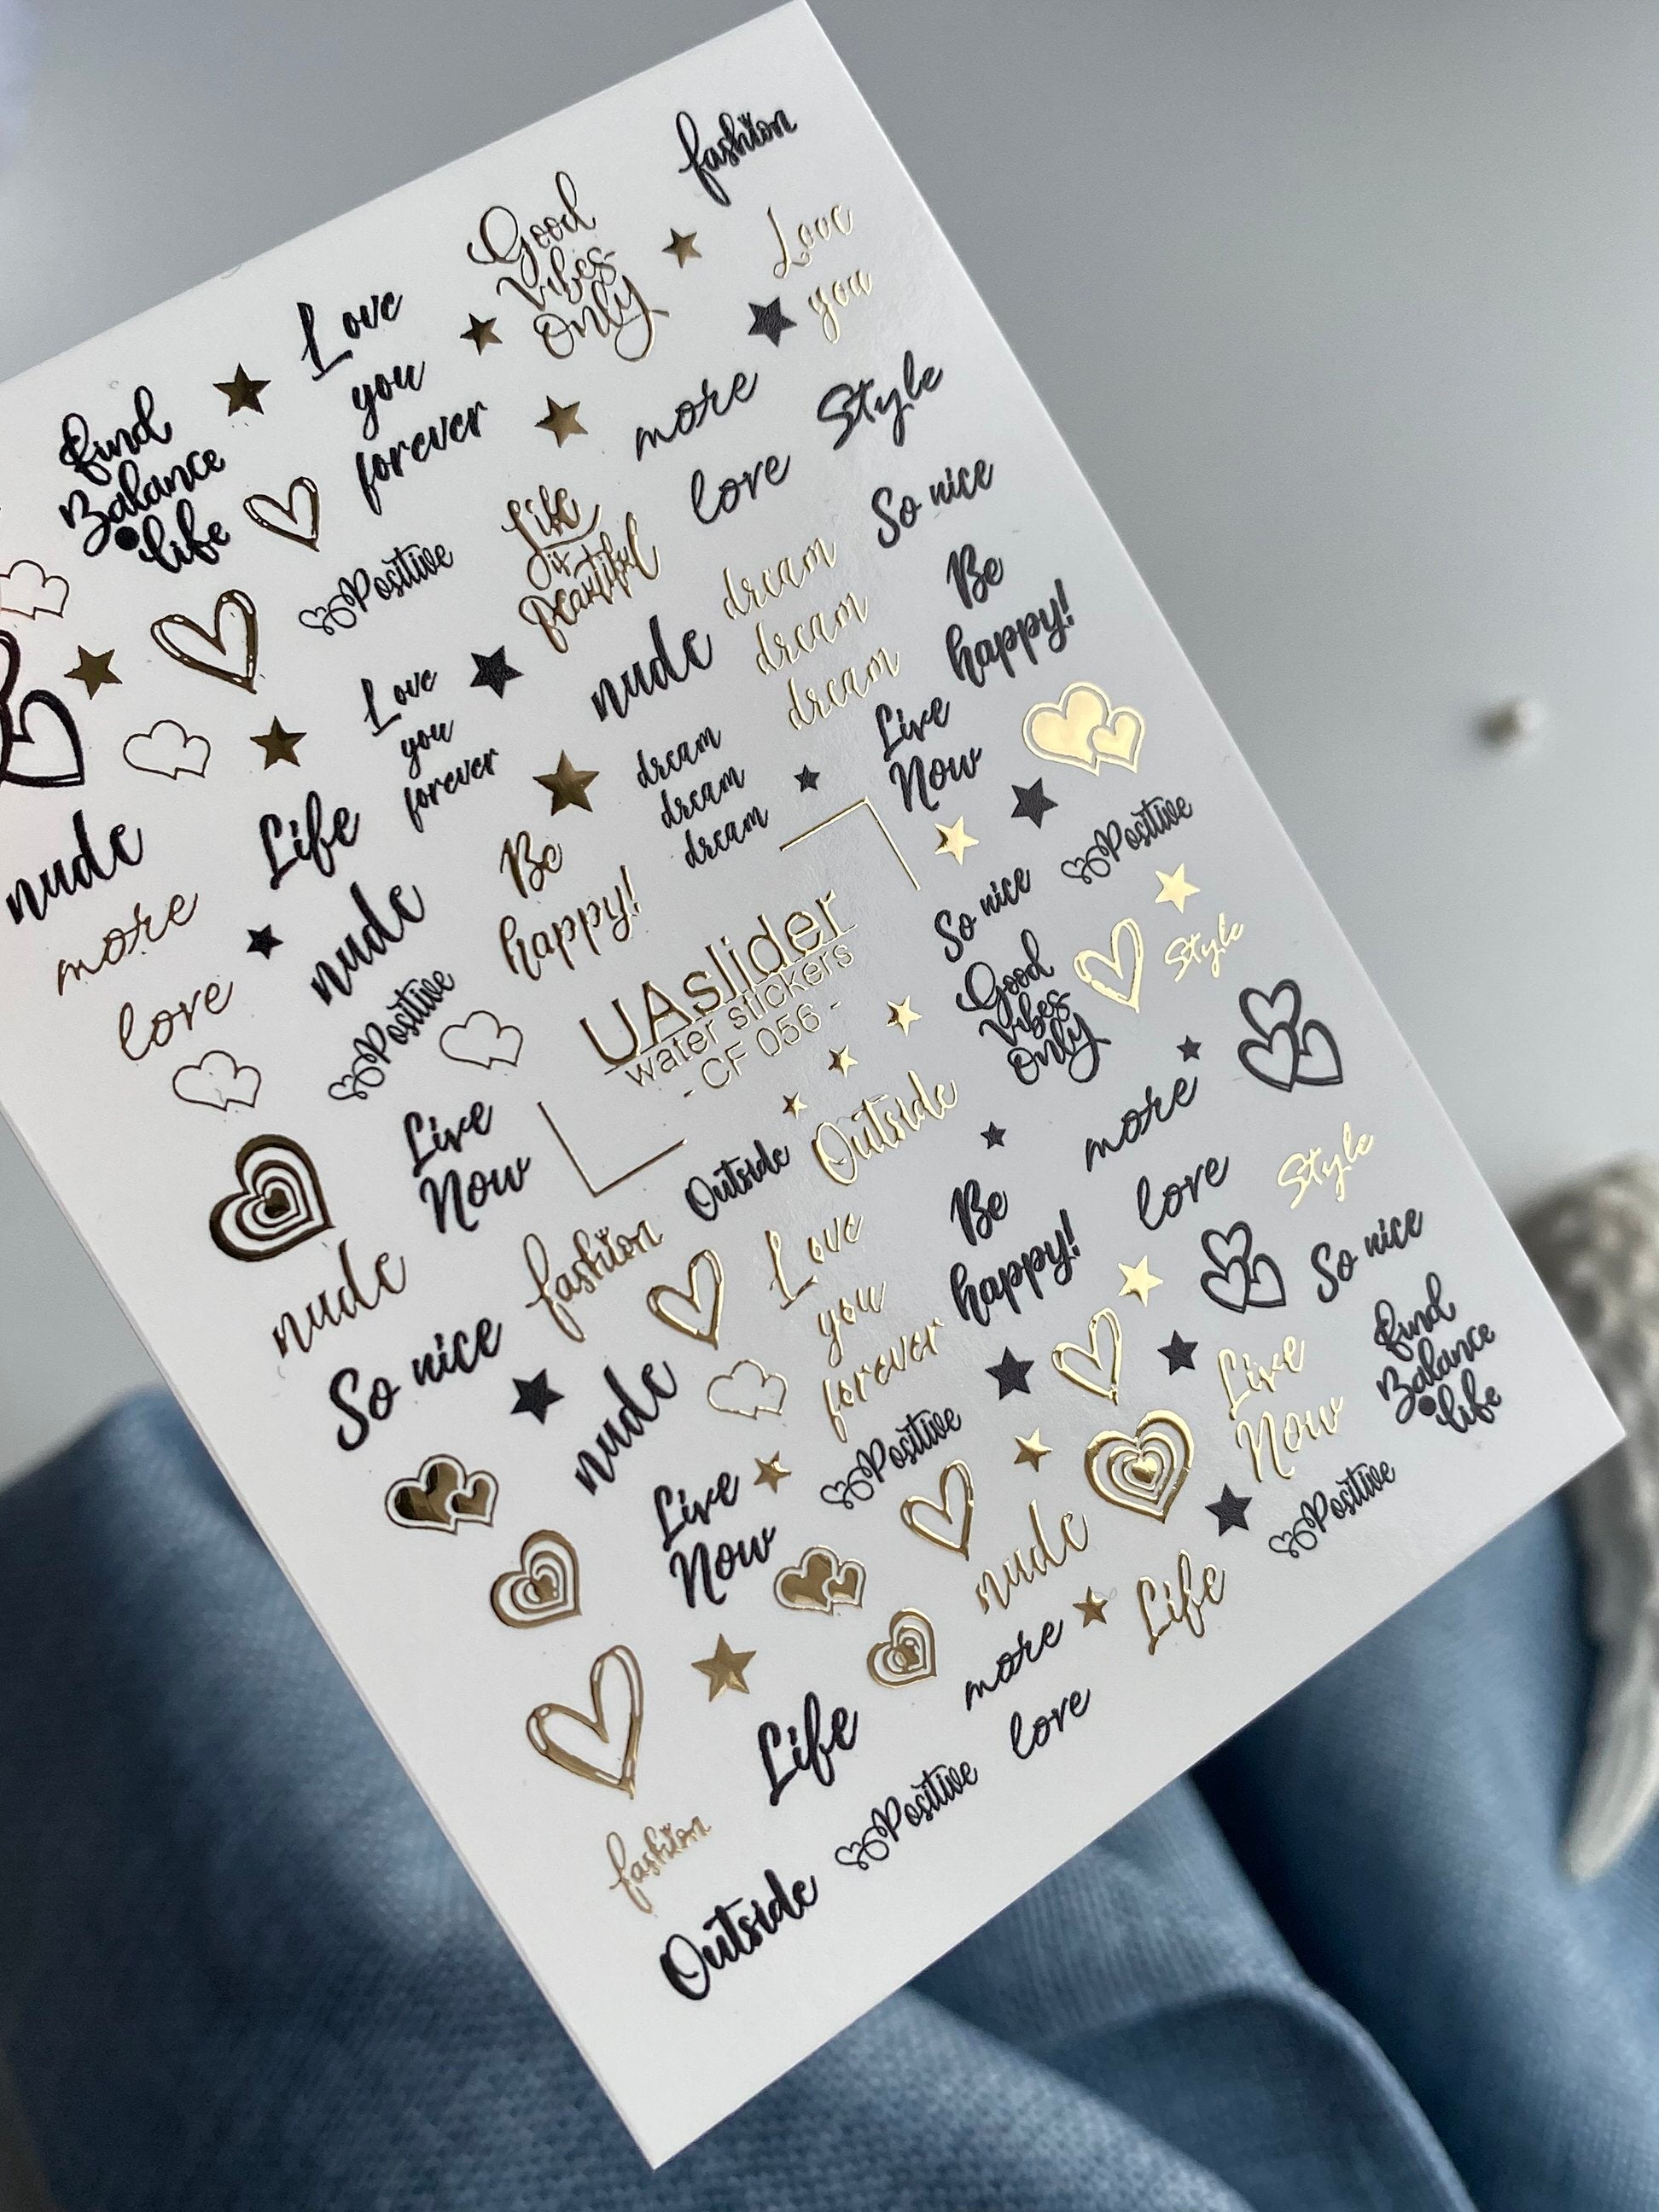 fashion
Good
Vibes
Only
Love
you
Love
you
forever
find
Balance
life
more
love
Style
So nice
Positive
Life
is
Beautiful
dream
dream
dream
Be
happy!
nude
Love
you
forever
Live
Now
dream
dream
dream
Life
nude
Be
happy!
Positive
nude
more
love
So nice
Style
UAslider
water stickers
- CF 056 -
Positive
Good
Vibes
Only
Live
Now
Outside
Outside
more
love
Style
Be
happy!
nude
fashion
Love
you
forever
So nice
So nice
find
Balance
life
Live
Now
nude
Positive
Live
Now
Positive
nude
Life
more
love
Life
Positive
fashion
Outside